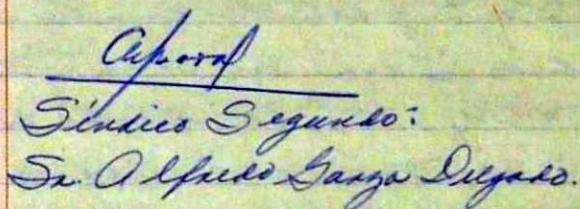 Síndico Segundo:
Sr. Alfredo Garza Delgado.